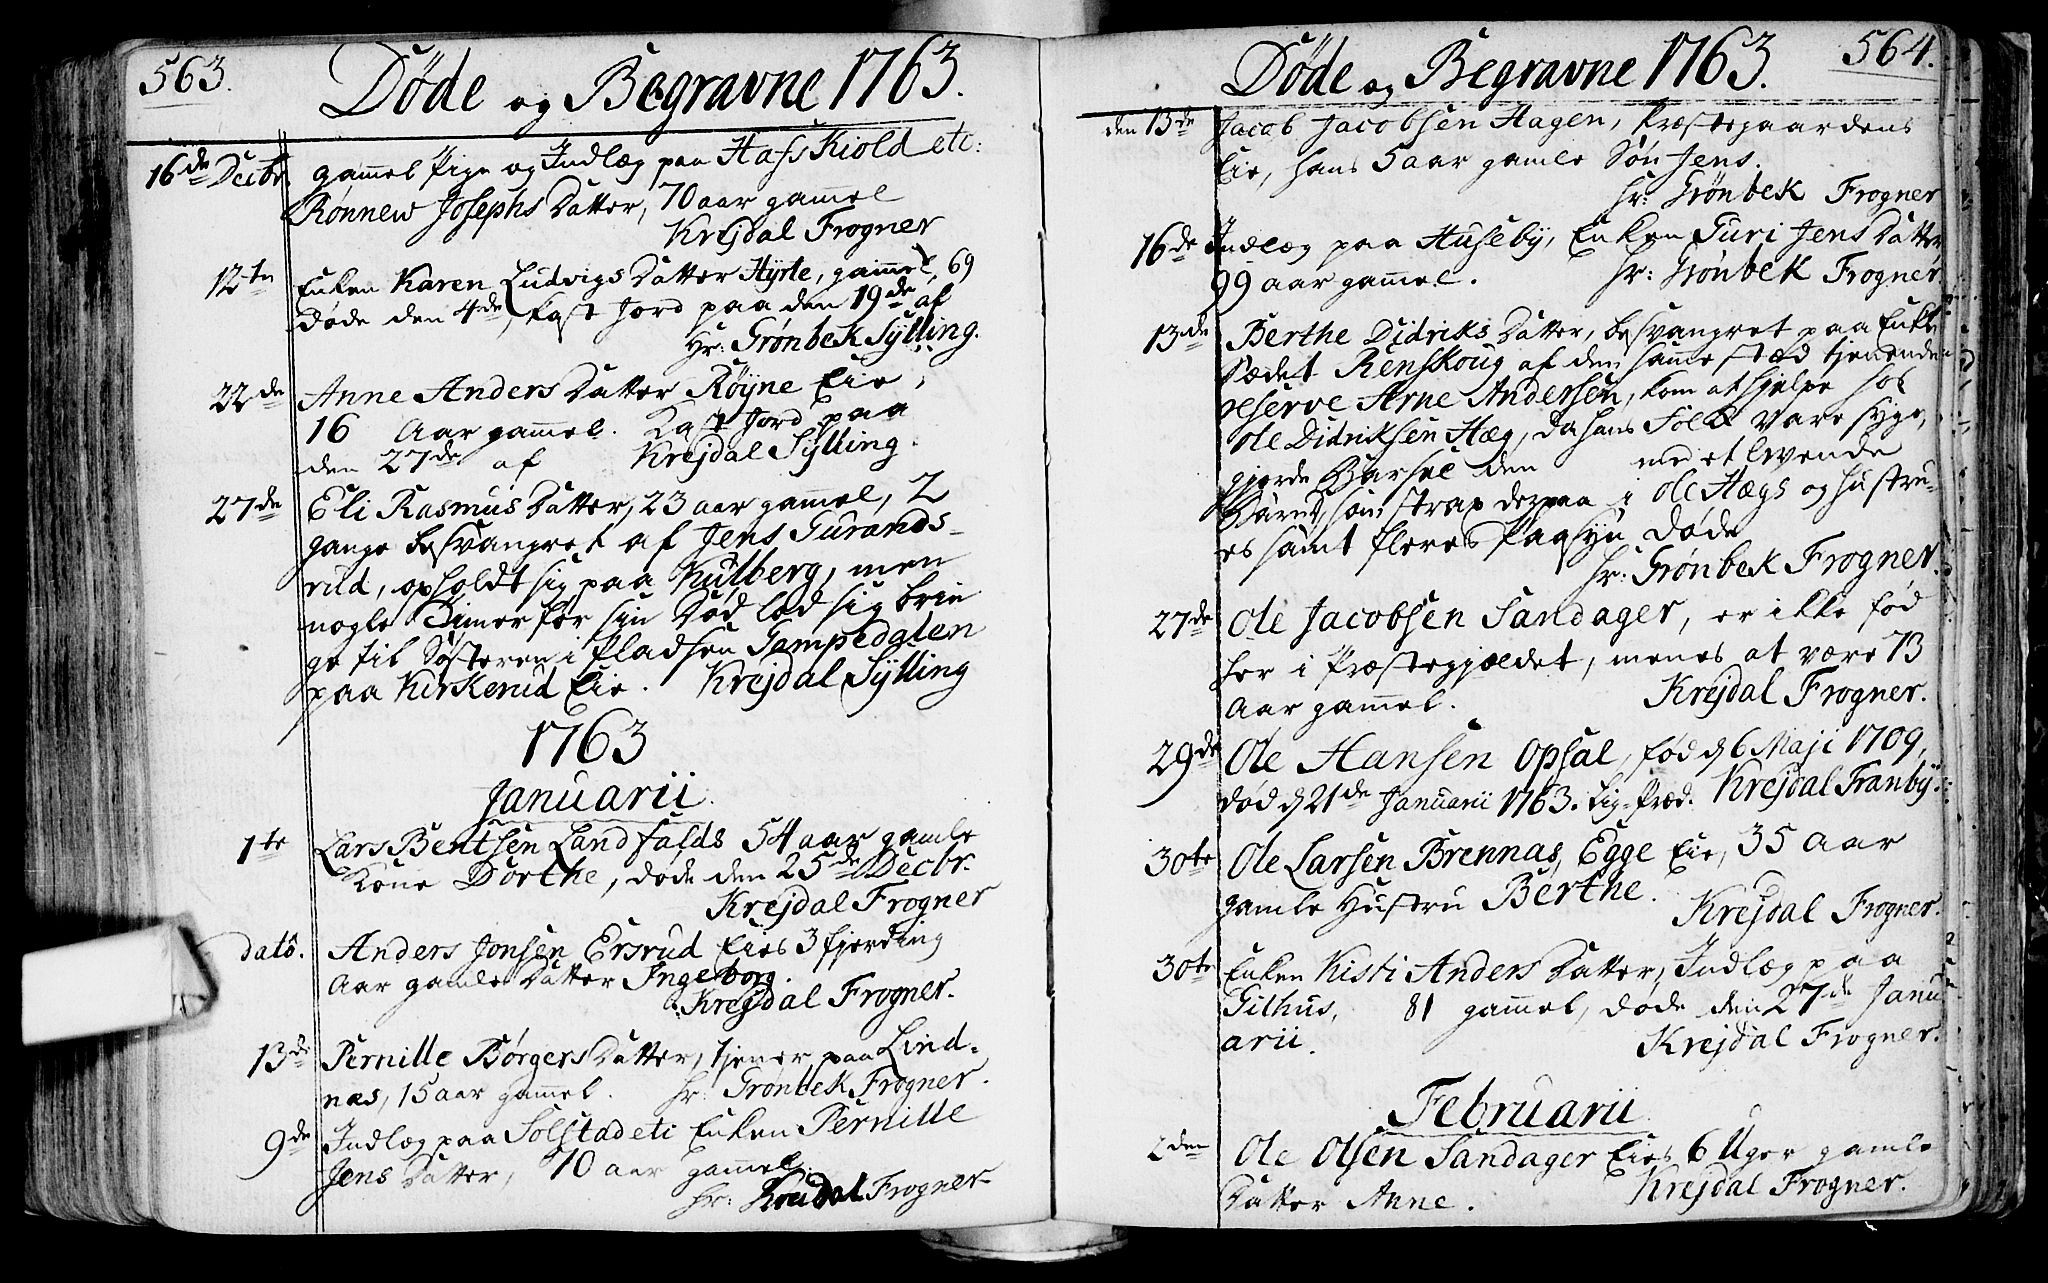 563.
Døde og Begravne 1763.
16de Decbr. gammel Pige og Indlæg paa Hafs Kiold etc:
Rønnew Josephs Datter, 70 aar gammel
Krejdal Frogner
12te Enken Karen Ludvigs Datter Hyrte, gammel, 69
døde den 4de, kast Jord paa den 19de af
Hr: Grønbek Sylling.
22de Anne Anders Datter Røyne Eie,
16 Aar gammel. Kast Jord paa
den 27de af Krejdal Sylling.
27de Eli Rasmus Datter, 23 aar gammel, 2
gange besvangret af Jens Gurands-
rud, opholdt sig paa Kulberg, men
nogle Timer før sin Død lod sig brin
ge til Søsteren i Pladsen Tempedalen
paa Kirkerud Eie. Krejdal Sylling
1763
Januarii.
1te Lars Bentsen Landfalds 54 aar gamle
Kone Dorthe, døde den 25de Decbr.
Krejdal Frogner
dato. Anders Jonsen Ersrud Eies 3 fjerding
Aar gamle Datter Ingeborg.
Krejdal Frogner.
13de Pernille Børgers Datter, tjener paa Lind-
næs, 15 aar gammel. Hr: Grønbek Frogner.
9de Indlæg paa Solstad eti Enken Pernille
Jens Datter, 70 aar gammel.
Hr: Krejdal Frogner
564.
Døde og Begravne 1763.
den 13de Jacob Jacobsen Hagen, Præstegaardens
Eie, hans 5 aar gamle Søn Jens.
Hr: Grønbek Frogner
16de Indlæg paa Huseby, Enken Guri Jens Datter
99 aar gammel. Hr: Grønbek Frogner.
13de Berthe Didriks Datter, besvangret paa Enke
Sædet Renskoug af den sammestæd tjenende
reserve Arne Andersen, kom at hjelpe hos
Ole Didriksen Hæg, da hans Folk vare syge,
gjorde Barsel den med et levende
Barn, som strax derpaa i Ole Hægs og Hustru-
es samt fleres Paasyn døde
Hr: Grønbek Frogner.
27de Ole Jacobsen Sandager, er ikke fød
her i Præstegjældet, menes at være 73
Aar gammel. Krejdal Frogner.
29de Ole Hansen Opsal, fød d 6 Maji 1709,
død d 21de Januarii 1763. Lig-Præd. Krejdal Franby.
30te Ole Larsen Brennas, Egge Eie, 35 Aar
gamle Hustru Berthe. Krejdal Frogner.
30te Enken Kisti Anders Datter, Indlæg paa
Gilhus, 81 gammel, døde den 27de Janu
arii. Krejdal Frogner.
Februarii
2den Ole Olsen Sandager Eies 6 Uger gamle
Datter Anne. Krejdal Frogner.